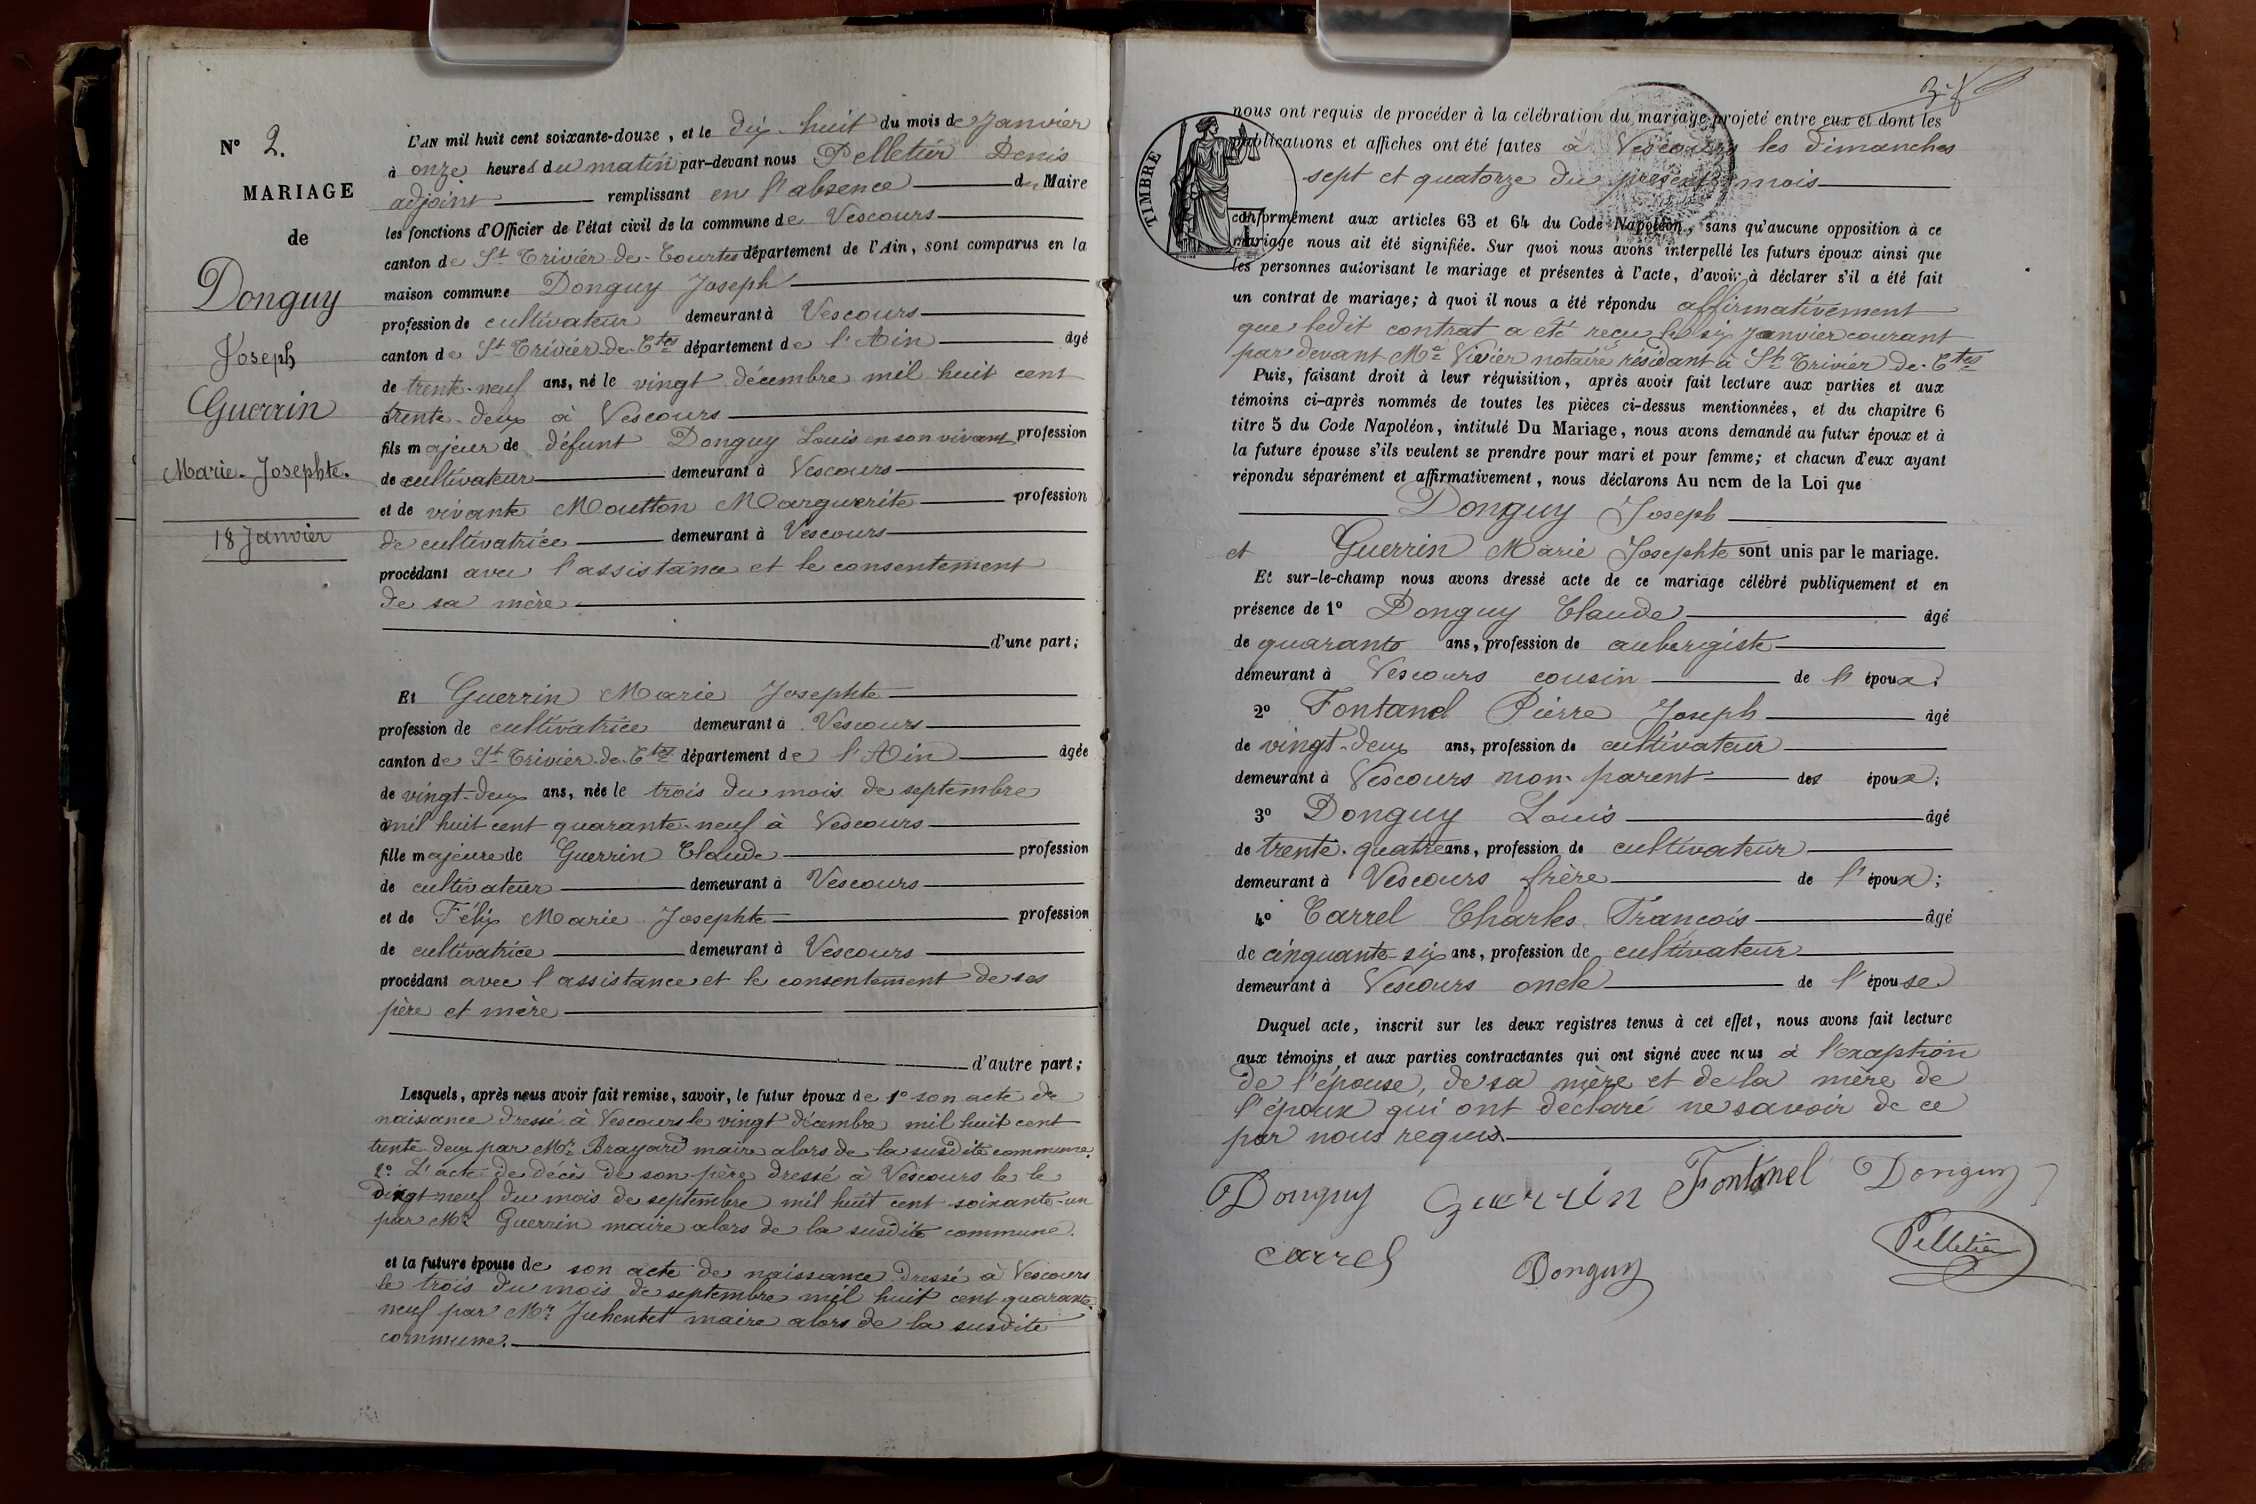 N° 2.
MARIAGE
de
Donguy
Joseph
Guerrin
Marie-Josephte.
18 Janvier
L'AN mil huit cent soixante-douze, et le dix-huit du mois de Janvier
à onze heures du matin par-devant nous Pelletier Denis
adjoint remplissant en l'absence du Maire
les fonctions d'Officier de l'état civil de la commune de Vescours
canton de St Trivier-de-Courtes département de l'Ain, sont comparus en la
maison commune Donguy Joseph
profession de cultivateur demeurant à Vescours
canton de St Trivier-de-Ctes département de l'Ain âgé
de trente-neuf ans, né le vingt décembre mil huit cent
trente-deux à Vescours
fils majeur de défunt Donguy Louis en son vivant profession
de cultivateur demeurant à Vescours
et de vivante Moutton Marguerite profession
de cultivatrice demeurant à Vescours
procédant avec l'assistance et le consentement
de sa mère
d'une part;
Et Guerrin Marie Josephte
profession de cultivatrice demeurant à Vescours
canton de St Trivier-de-Ctes département de l'Ain âgée
de vingt-deux ans, née le trois du mois de septembre
mil huit cent quarante-neuf à Vescours
fille majeure de Guerrin Claude profession
de cultivateur demeurant à Vescours
et de Félix Marie Josephte profession
de cultivatrice demeurant à Vescours
procédant avec l'assistance et le consentement de ses
père et mère
d'autre part;
Lesquels, après nous avoir fait remise, savoir, le futur époux de 1° son acte de
naissance dressé à Vescours le vingt décembre mil huit cent
trente deux par Mr Brayard maire alors de la susdite commune.
2° L'acte de décès de son père dressé à Vescours le le
vingt-neuf du mois de septembre mil huit cent soixante-un
par Mr Guerrin maire alors de la susdite commune.
et la future épouse de son acte de naissance dressé à Vescours
le trois du mois de septembre mil huit cent quarante-
neuf par Mr Juhentet maire alors de la susdite
commune.
nous ont requis de procéder à la célébration du mariage projeté entre eux et dont les
publications et affiches ont été faites à Vescours les dimanches
sept et quatorze du présent mois
TIMBRE
conformément aux articles 63 et 64 du Code Napoléon, sans qu'aucune opposition à ce
mariage nous ait été signifiée. Sur quoi nous avons interpellé les futurs époux ainsi que
les personnes autorisant le mariage et présentes à l'acte, d'avoir à déclarer s'il a été fait
un contrat de mariage; à quoi il nous a été répondu affirmativement
que ledit contrat a été reçu le six Janvier courant
par devant Me Vivier notaire résidant à St Trivier de-Ctes
Puis, faisant droit à leur réquisition, après avoir fait lecture aux parties et aux
témoins ci-après nommés de toutes les pièces ci-dessus mentionnées, et du chapitre 6
titre 5 du Code Napoléon, intitulé Du Mariage, nous avons demandé au futur époux et à
la future épouse s'ils veulent se prendre pour mari et pour femme; et chacun d'eux ayant
répondu séparément et affirmativement, nous déclarons Au nom de la Loi que
Donguy Joseph
et Guerrin Marie Josephte sont unis par le mariage.
Et sur-le-champ nous avons dressé acte de ce mariage célébré publiquement et en
présence de 1° Donguy Claude âgé
de quarante ans, profession de aubergiste
demeurant à Vescours cousin de l'époux;
2° Fontanel Pierre Joseph âgé
de vingt-deux ans, profession de cultivateur
demeurant à Vescours non-parent des époux;
3° Donguy Louis âgé
de trente-quatre ans, profession de cultivateur
demeurant à Vescours frère de l'époux;
4° Carrel Charles François âgé
de cinquante-six ans, profession de cultivateur
demeurant à Vescours oncle de l'épouse
Duquel acte, inscrit sur les deux registres tenus à cet effet, nous avons fait lecture
aux témoins et aux parties contractantes qui ont signé avec nous à l'exception
de l'épouse, de sa mère et de la mère de
l'époux qui ont déclaré ne savoir de ce
par nous requis.
Donguy Guerrin Fontanel Donguy
Carrel Donguy Pelletier